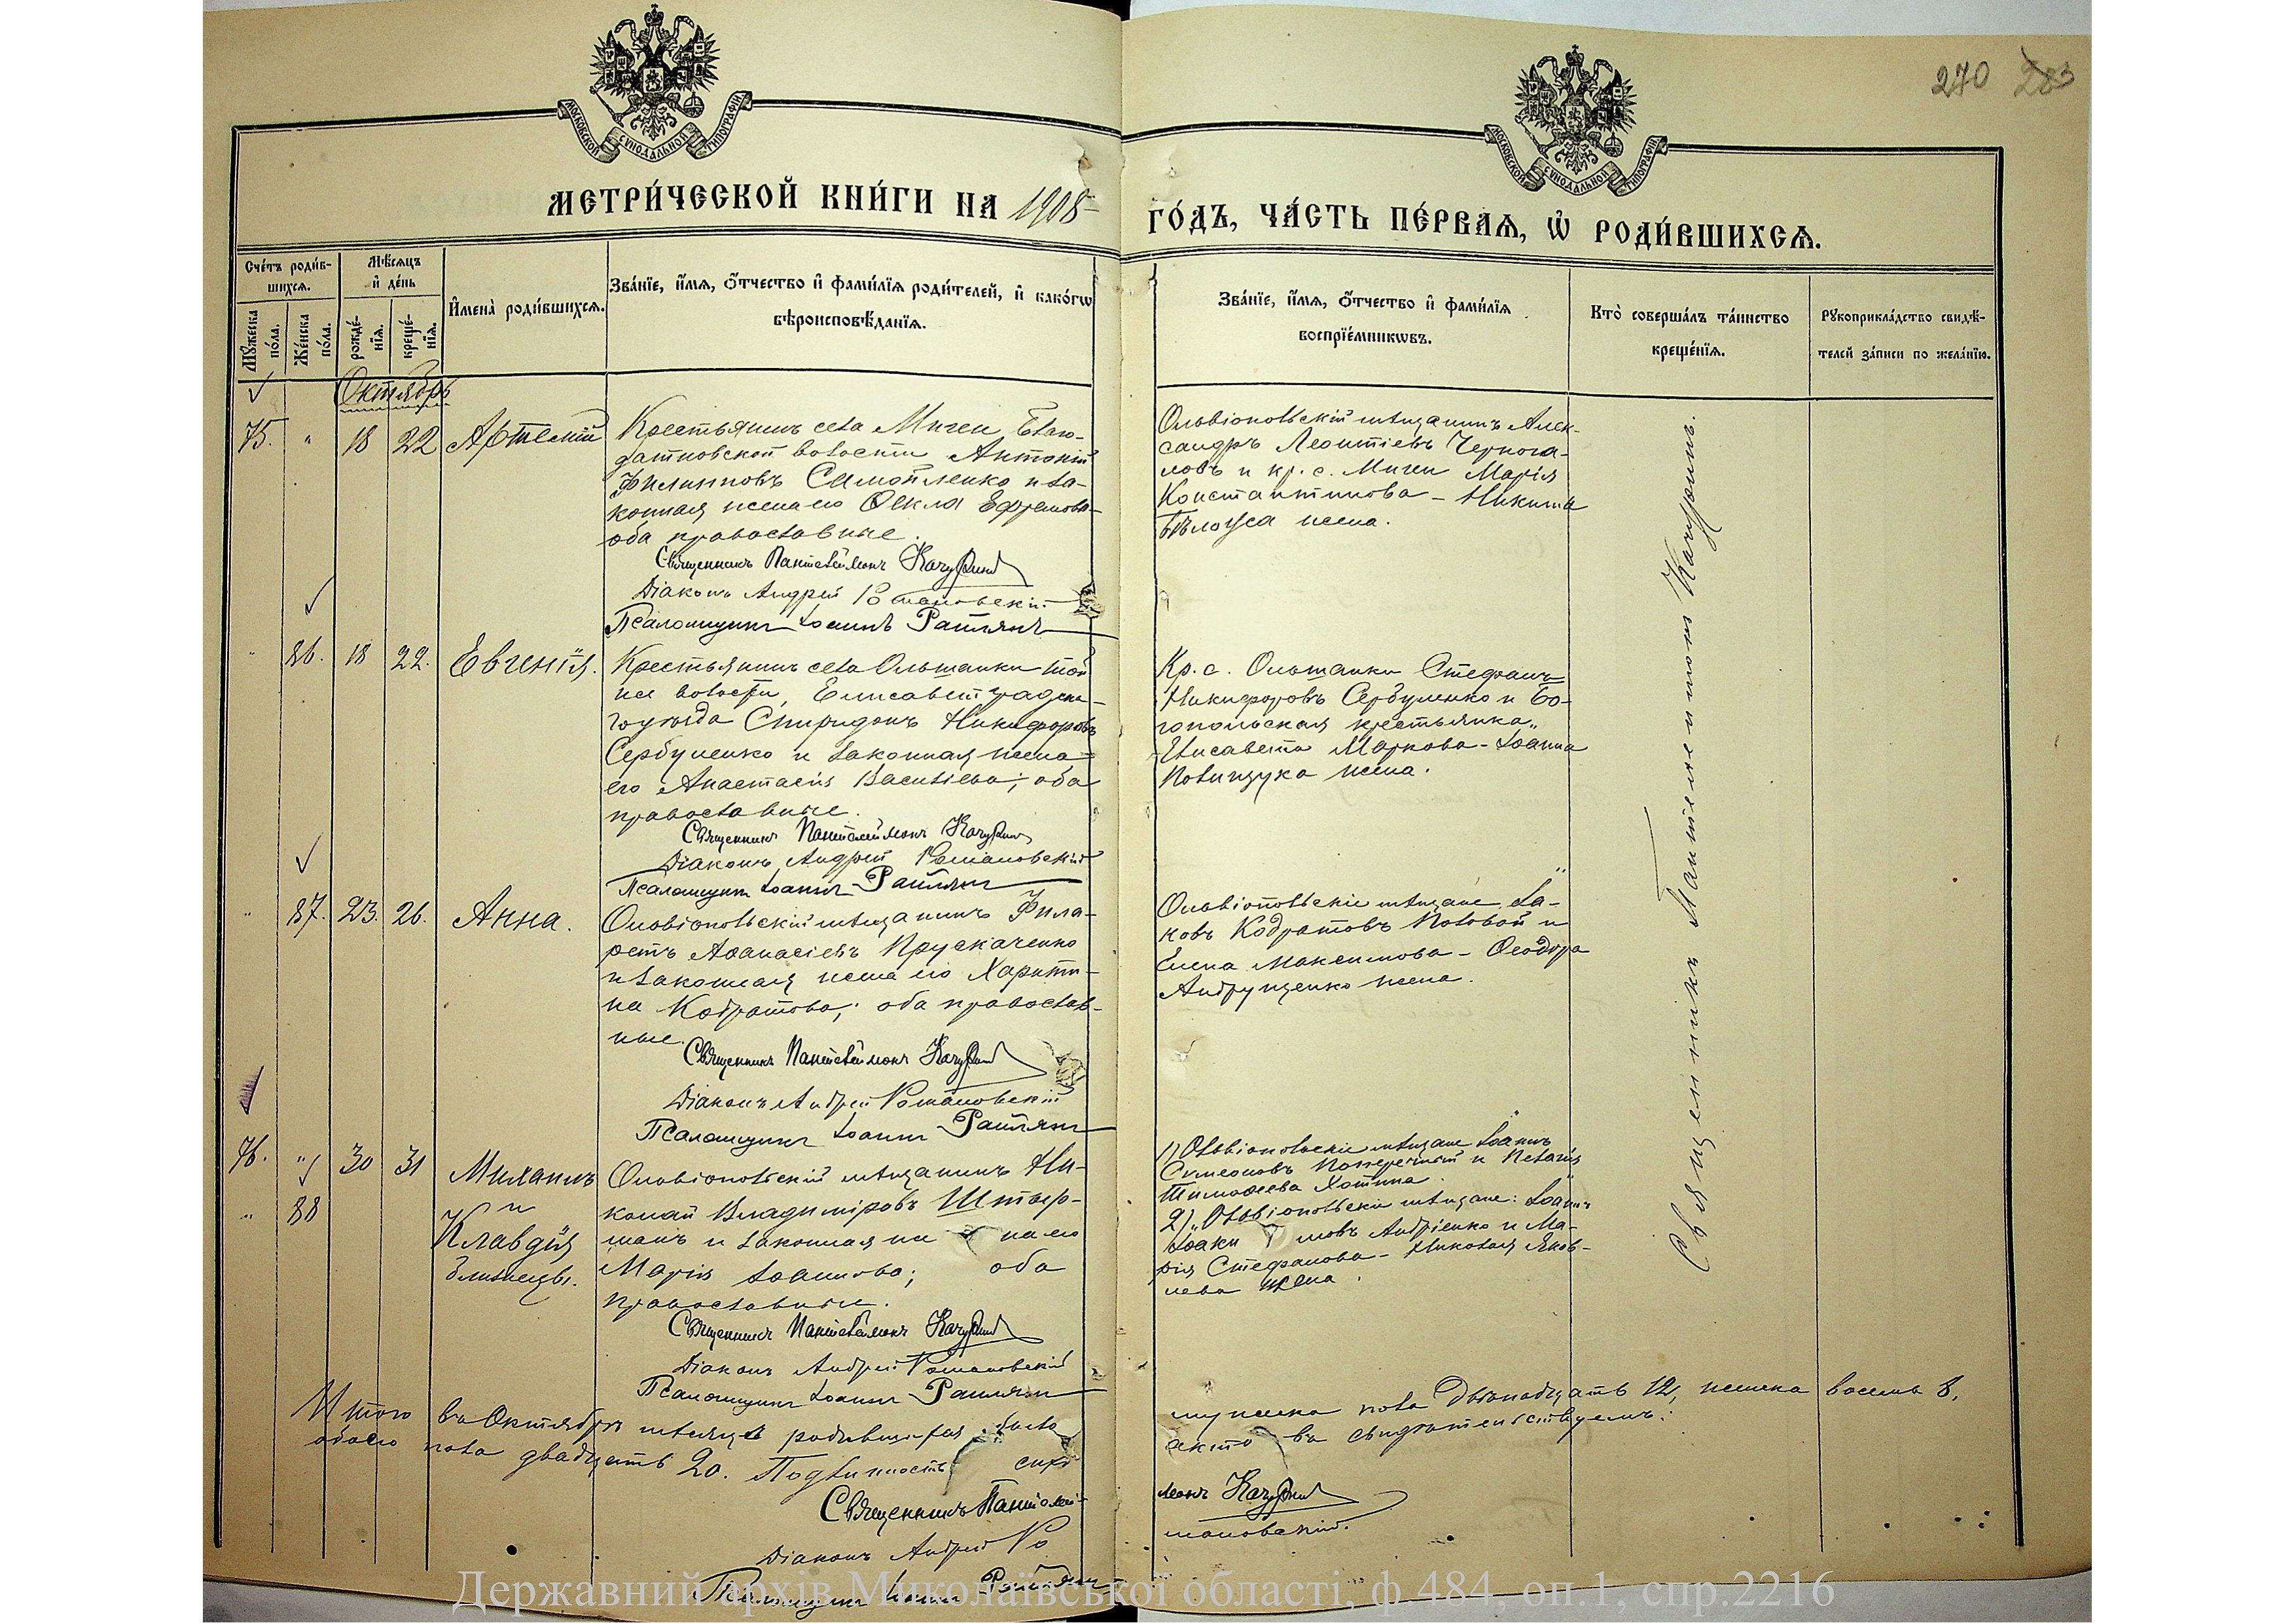 270 283
МОСКОВСКОЙ СѴНОДАЛЬНОЙ ТИПОГРАФІИ
МОСКОВСКОЙ СѴНОДАЛЬНОЙ ТИПОГРАФІИ
МЕТРИ́ЧЕСКОЙ КНИ́ГИ НА 1908
ГО́ДЪ, ЧА́СТЬ ПЕ́РВАѦ, Ѡ РОДИ́ВШИХСѦ.
Сче́тъ роди́в-
шихсѧ.
Мѣ́сѧцъ
и де́нь
Мꙋ́жеска по́ла.
Же́нска по́ла.
рожде́-
нїѧ.
креще́-
нїѧ.
Имена̀ роди́вшихсѧ.
Зва́нїе, и́мѧ, ѻ́тчество и фами́лїѧ роди́телей, и како́гѡ
вѣроисповѣ́данїѧ.
Зва́нїе, и́мѧ, ѻ́тчество и фами́лїѧ
воспрїе́мникѡвъ.
Кто̀ соверша́лъ та́инство
креще́нїѧ.
Рꙋкоприкла́дство свидѣ́-
телей за́писи по жела́нїю.
Октябрь
75. " 18 22 Артемій
Крестьянинъ села Мигеи Благо-
датновской волости Антоній
Филипповъ Самойленко и за-
конная жена его Ѳекла Ефремова
оба православные.
Священникъ Пантелеймонъ Качуринъ
Діаконъ Андрей Романовскій
Псаломщикъ Іоаннъ
Ольвіопольскій мѣщанинъ Алек-
сандръ Леонтіевъ Чернога-
ловъ и кр. с. Мигеи Марія
Константинова – Никиты
Бѣлоуса жена.
" 86. 18 22. Евгенія.
Крестьянинъ села Ольшанки той
же волости, Елисаветградска-
го уѣзда Спиридонъ Никифоровъ
Сербуленко и законная жена
его Анастасія Васильева; оба
православные.
Священникъ Пантелеймонъ Качуринъ
Діаконъ Андрей Романовскій
Псаломщикъ Іоаннъ
Кр. с. Ольшанки Стефанъ
Никифоровъ Сербуленко и Бо-
гопольская крестьянка
Елисавета Маркова – Іоанна
Полищука жена.
" 87. 23. 26. Анна.
Ольвіопольскій мѣщанинъ Фила-
ретъ Аѳанасіевъ Прускаченко
и законная жена его Харити-
на Кодратова; оба православ-
ные.
Священникъ Пантелеймонъ Качуринъ
Діаконъ Андрей Романовскій
Псаломщикъ Іоаннъ
Ольвіопольскіе мѣщане Іа-
ковъ Кодратовъ Половой и
Елена Максимова – Ѳеодора
Андрущенко жена.
76. " 30 31 Михаилъ
" 88 и
Клавдія
близнецы.
Ольвіопольскій мѣщанинъ Ни-
колай Владиміровъ Штыр-
манъ и законная жена его
Марія Іоаннова; оба
православные.
Священникъ Пантелеймонъ Качуринъ
Діаконъ Андрей Романовскій
Псаломщикъ Іоаннъ
1) Ольвіопольскіе мѣщане Іоаннъ
Симеоновъ Поперечный и Пелагія
Тимоѳеева Хотина.
2) Ольвіопольскіе мѣщане: Іоаннъ
Іоакимовъ Андріенко и Ма-
рія Стефанова – Николая Яков-
лева жена.
Священникъ Пантелеимонъ Качуринъ.
Итого въ Октябрѣ мѣсяцѣ родившихся было мужска пола двѣнадцать 12, женска восемь 8,
обоего пола двадцать 20. Подлинность сихъ актовъ свидѣтельствуемъ:
Священникъ Пантелеймонъ Качуринъ
Діаконъ Андрей Романовскій.
Псаломщикъ Іоаннъ
Державний архів Миколаївської області, ф.484, оп.1, спр.2216